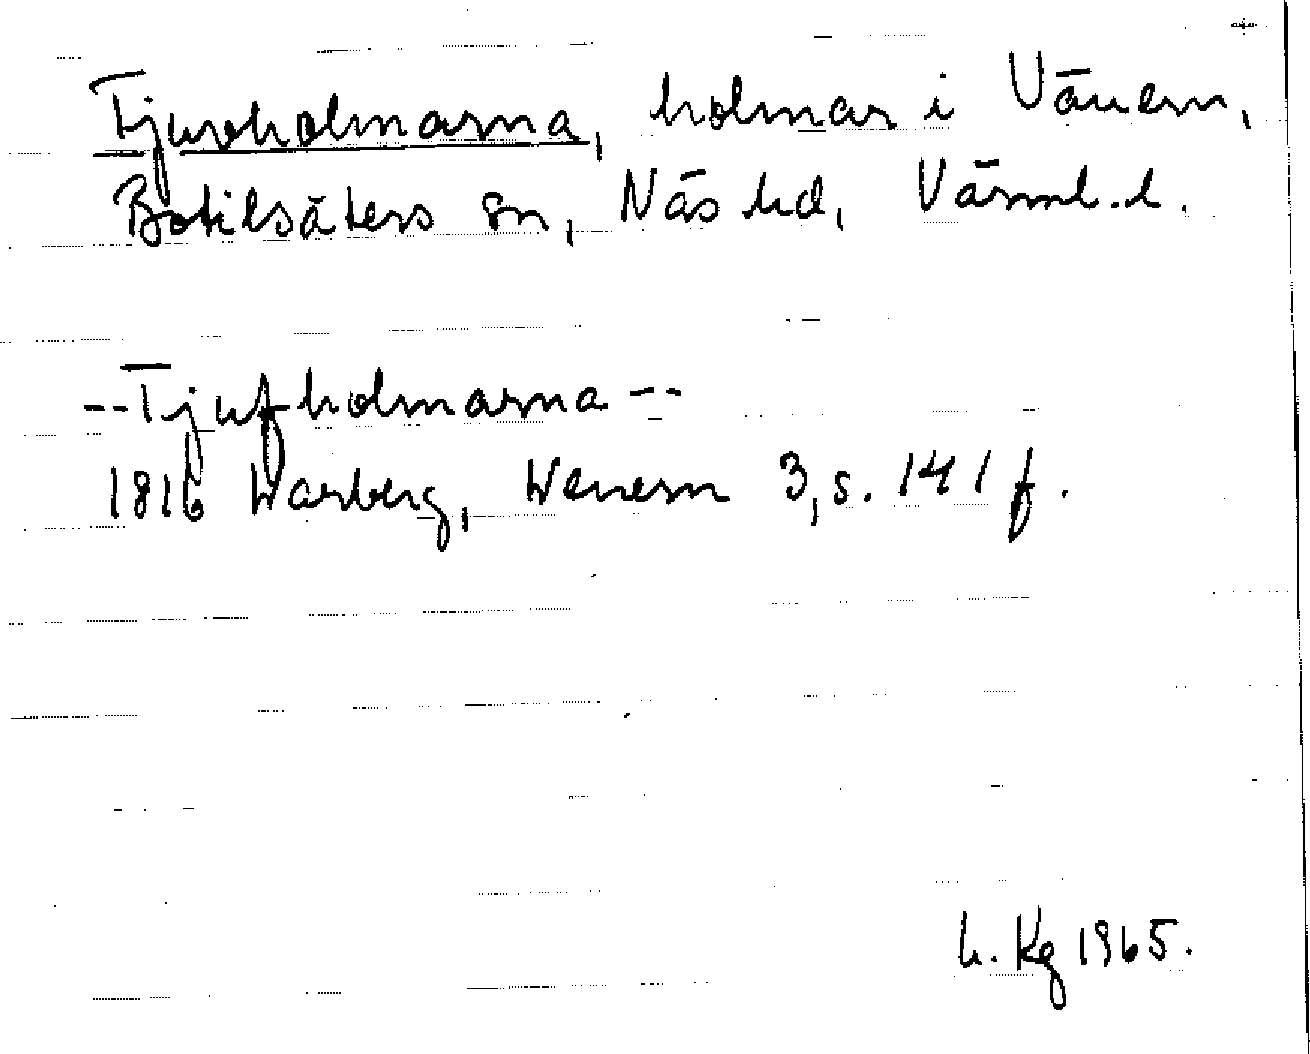 Tjuvholmarna, holmar i Vänern,
Botilsäters sn, Näs hd, Värml. l.
--Tjufholmarna--
1816 Warberg, Wenern 3, s. 141 f.
h. Kg 1965.